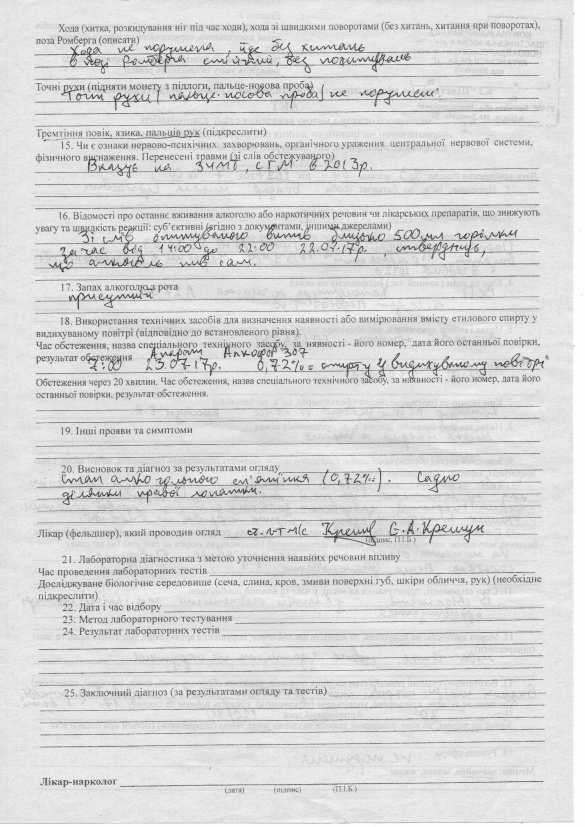 Хода (хитка, розкидування ніг під час ходи), хода зі швидкими поворотами (без хитань, хитання при поворотах),
поза Ромберга (описати)
Хода не порушена, йде без хитань
в позі Ромберга стійкий, без похитувань
Точні рухи (підняти монету з підлоги, пальце-носова проба)
Точні рухи (пальце-носова проба) не порушені.
Тремтіння повік, язика, пальців рук (підкреслити)
15. Чи є ознаки нервово-психічних захворювань, органічного ураження центральної нервової системи,
фізичного виснаження. Перенесені травми (зі слів обстежуваного)
Вказує на ЗЧМТ, СГМ в 2013р.
16. Відомості про останнє вживання алкоголю або наркотичних речовин чи лікарських препаратів, що знижують
увагу та швидкість реакції: суб`єктивні (згідно з документами, іншими джерелами)
Зі слів випив близько 500 мл горілки
за час від 14:00 до 22:00 22.07.17р., стверджує,
що алкоголь пив сам.
17. Запах алкоголю з рота
присутній
18. Використання технічних засобів для визначення наявності або вимірювання вмісту етилового спирту у
видихуваному повітрі (відповідно до встановленого рівня).
Час обстеження, назва спеціального технічного засобу, за наявності - його номер, дата його останньої повірки,
результат обстеження
Апарат Алкофор 307
2:00 23.07.17р. 0,72‰ спирту у видихуваному повітрі
Обстеження через 20 хвилин. Час обстеження, назва спеціального технічного засобу, за наявності - його номер, дата його
останньої повірки, результат обстеження.
19. Інші прояви та симптоми
20. Висновок та діагноз за результатами огляду
Стан алкогольного сп'яніння (0,72‰). Садно
ділянки правої лопатки.
Лікар (фельдшер), який проводив огляд
(підпис, П.І.Б.)
21. Лабораторна діагностика з метою уточнення наявних речовин впливу
Час проведення лабораторних тестів
Досліджуване біологічне середовище (сеча, слина, кров, змиви поверхні губ, шкіри обличчя, рук) (необхідне
підкреслити)
22. Дата і час відбору
23. Метод лабораторного тестування
24. Результат лабораторних тестів
25. Заключний діагноз (за результатами огляду та тестів)
Лікар-нарколог
(дата) (підпис) (П.І.Б.)